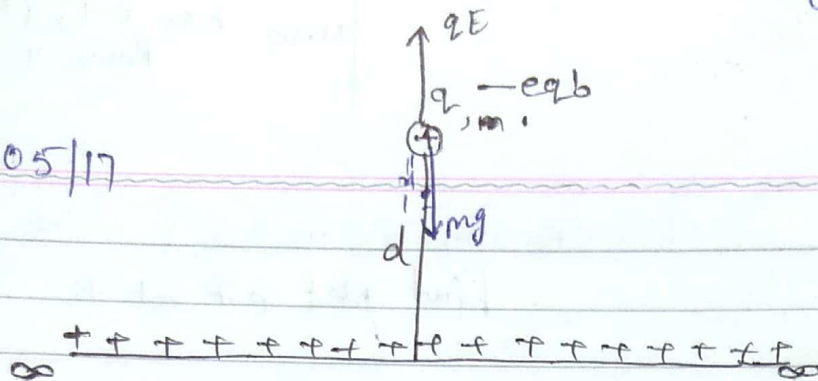 qE
q, m. — eqb
05/17
x
mg
d
+ + + + + + + + + + + + + + + +
∞ ∞